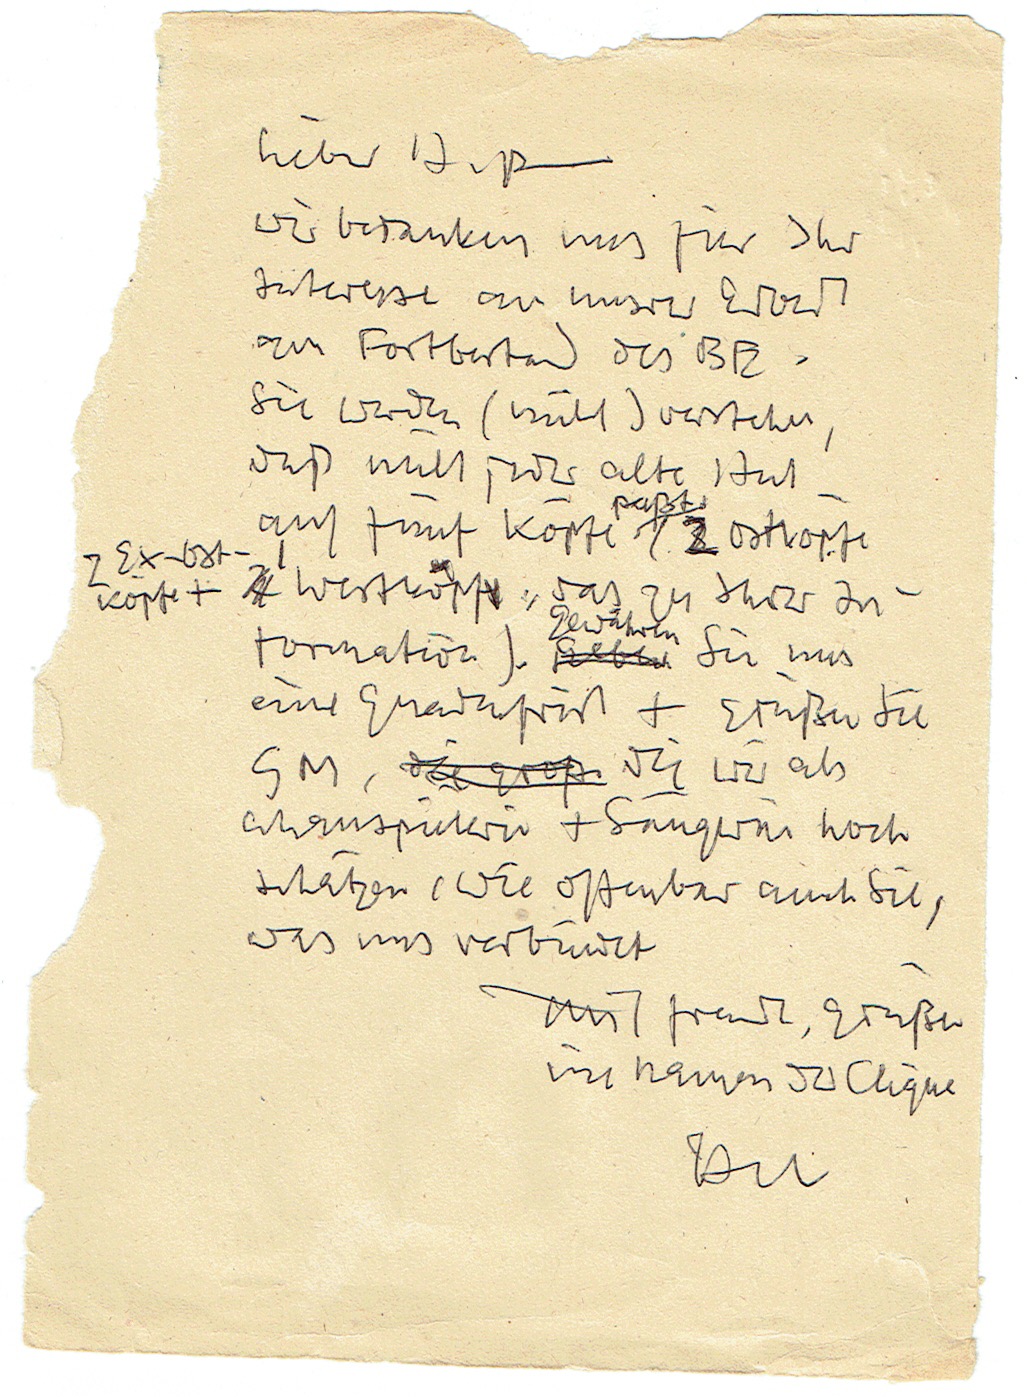 Lieber H.
wir bedanken uns für Ihr
Interesse an unsrer Arbeit
am Fortbestand des BE.
Sie werden (nicht) verstehen,
daß nicht jeder alte Hut
auf fünf Köpfe paßt (2 Ostköpfe
2 Ex-Ost-
köpfe + 1 Westkopf, das zu Ihrer In-
formation). Gewähren Sie uns
eine Gnadenfrist + grüßen Sie
GM, die wir als
Schauspielerin + Sängerin hoch
schätzen, wie offenbar auch Sie,
was uns verbindet
Mit freundl. Grüßen
im Namen der Clique